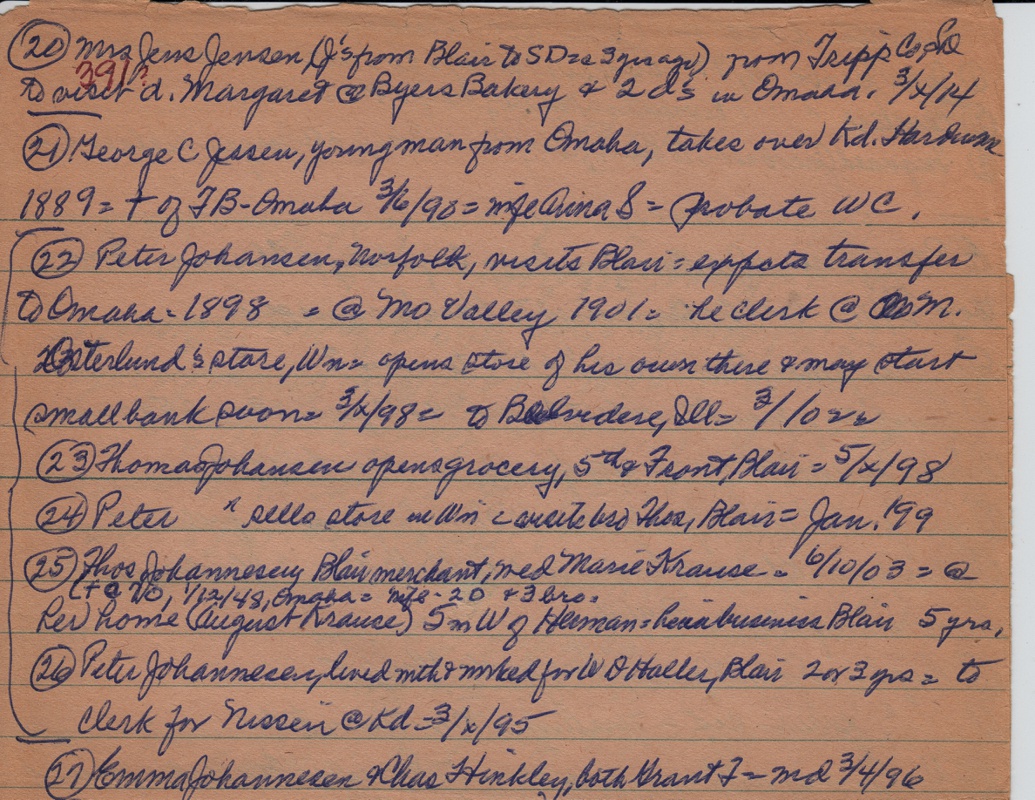 (20) Mrs Jens Jensen, (J's from Blair to SD = a 3 yrs ago) from Tripp Co SD
391?
to visit d. Margaret @ Byers Bakery & 2 d's in Omaha. 3/4/14
(21) George C Jessen, young man from Omaha, takes over Kd. Hardware
1889 = + of TB - Omaha 3/6/90 = wife Anna S = probate WC.
(22) Peter Johansen, Norfolk, visits Blair = expects transfer
to Omaha - 1898 = @ Mo Valley 1901 = he clerk @ M.
Osterlund's store, Wn = opens store of his own there & may start
small bank soon = 3/x/98 = to Belvidere, Ill = 3/10 =
(23) Thomas Johansen opens grocery, 5th & Front, Blair = 5/x/98
(24) Peter " sells store in Wn = bro Thos, Blair = Jan. '99
(25) Thos Johannesen, Blair merchant, wed Marie Krause = 6/10/03 = @
(+ @ 70, 1/12/48, Omaha = wife - 2D & 3 bro =
her home (August Krause) 5 m W of Herman = he in business Blair 5 yrs.
(26) Peter Johannesen, lived with & worked for W D Haller, Blair 2 or 3 yrs = to
clerk for Nissen @ Kd - 3/x/95
(27) Emma Johannesen & Chas Hinkley, both Grant T = md 3/4/96